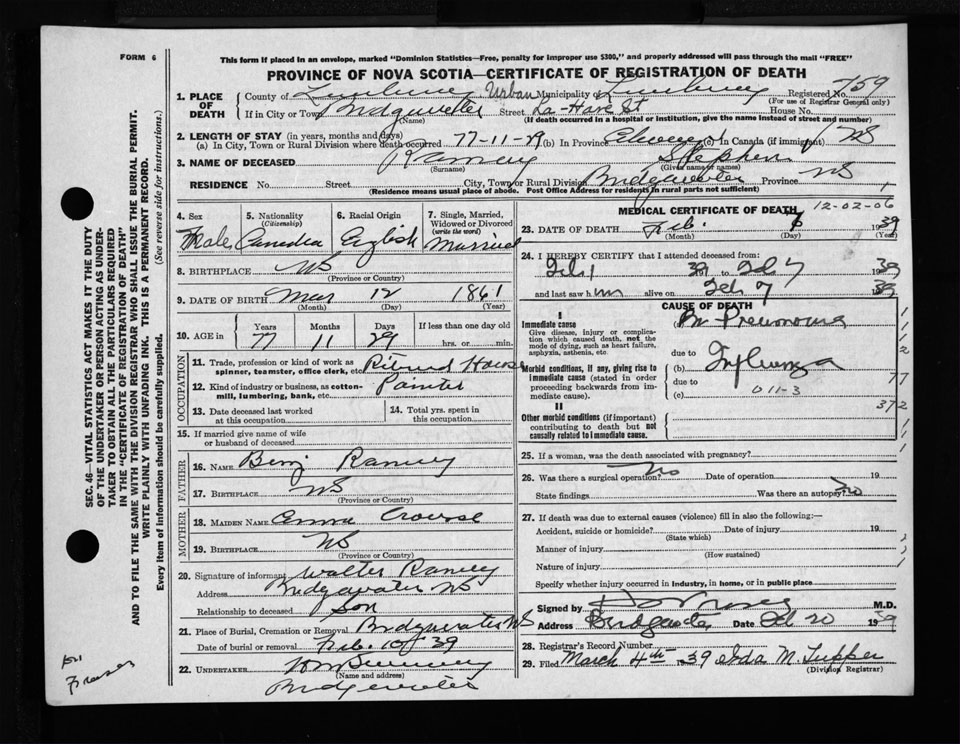 FORM 6
This form if placed in an envelope, marked "Dominion Statistics—Free, penalty for improper use $300," and properly addressed will pass through the mail "FREE"
PROVINCE OF NOVA SCOTIA—CERTIFICATE OF REGISTRATION OF DEATH
SEC. 46—VITAL STATISTICS ACT MAKES IT THE DUTY
OF THE UNDERTAKER OR PERSON ACTING AS UNDER-
TAKER TO OBTAIN ALL THE PARTICULARS REQUIRED
IN THE "CERTIFICATE OF REGISTRATION OF DEATH"
AND TO FILE THE SAME WITH THE DIVISION REGISTRAR WHO SHALL ISSUE THE BURIAL PERMIT.
WRITE PLAINLY WITH UNFADING INK. THIS IS A PERMANENT RECORD.
Every item of information should be carefully supplied. (See reverse side for instructions.)
1. PLACE OF DEATH
County of Lunenburg Urban Municipality of Lunenburg Registered No. 759
(For use of Registrar General only)
If in City or Town Bridgewater Street La-Have St House No.
(Name) (If death occurred in a hospital or institution, give the name instead of street and number)
2. LENGTH OF STAY (in years, months and days)
(a) In City, Town or Rural Division where death occurred 77-11-29 (b) In Province (c) In Canada (if immigrant) NS
3. NAME OF DECEASED Ramey Stephen
(Surname) (Given name or names)
RESIDENCE No. Street City, Town or Rural Division Bridgewater Province NS
(Residence means usual place of abode. Post Office Address for residents in rural parts not sufficient)
4. Sex 5. Nationality (Citizenship) 6. Racial Origin 7. Single, Married, Widowed or Divorced (write the word)
Male Canadia English Married
8. BIRTHPLACE NS
(Province or Country)
9. DATE OF BIRTH Mar 12 1861
(Month) (Day) (Year)
10. AGE in Years Months Days If less than one day old
77 11 29 hrs. or min.
OCCUPATION
11. Trade, profession or kind of work as spinner, teamster, office clerk, etc. Retired House
12. Kind of industry or business, as cotton-mill, lumbering, bank, etc. Painter
13. Date deceased last worked at this occupation
14. Total yrs. spent in this occupation
15. If married give name of wife or husband of deceased
FATHER
16. NAME Benj Ramey
17. BIRTHPLACE NS
MOTHER
18. MAIDEN NAME Anna Crouse
19. BIRTHPLACE NS
(Province or Country)
20. Signature of informant Walter Ramey
Address Bridgewater NS
Relationship to deceased Son
21. Place of Burial, Cremation or Removal Bridgewater NS
Date of burial or removal Feb. 10 39
22. UNDERTAKER
(Name and address)
Bridgewater
MEDICAL CERTIFICATE OF DEATH
12-02-06
23. DATE OF DEATH Feb. 7 1939
(Month) (Day) (Year)
24. I HEREBY CERTIFY that I attended deceased from:
Feb 1 39 to Feb 7 1939
and last saw him alive on Feb 7 1939
CAUSE OF DEATH
I
Immediate cause
Give disease, injury or complication which caused death, not the mode of dying, such as heart failure, asphyxia, asthenia, etc.
(a) Br Pneumonia
due to
Morbid conditions, if any, giving rise to immediate cause (stated in order proceeding backwards from immediate cause).
(b) Influenza
due to
(c) 011-3
77
372
II
Other morbid conditions (if important) contributing to death but not causally related to immediate cause.
25. If a woman, was the death associated with pregnancy?
26. Was there a surgical operation? No Date of operation 19
State findings Was there an autopsy? No
27. If death was due to external causes (violence) fill in also the following:—
Accident, suicide or homicide? Date of injury 19
(State which)
Manner of injury
(How sustained)
Nature of injury
Specify whether injury occurred in industry, in home, or in public place
Signed by M.D.
Address Bridgewater Date Feb 20 1939
28. Registrar's Record Number
29. Filed March 4th 1939 Ada M. Tupper
(Division Registrar)